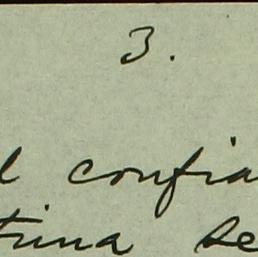 3.
l confia
trina se